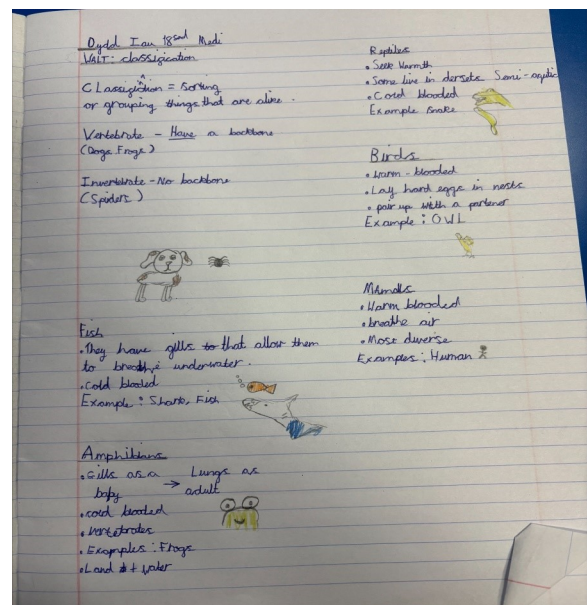 Dydd Iau 18fed Medi
WALT: classigication
Classigiction = sorting
or grouping things that are alike.
Vertebrate - Have a backbone
(Dogs Frogs)
Invertebrate - No backbone
(Spiders)
Fish
• They have gills to that allow them
to breathe underwater.
• Cold blooded
Example : Shark, Fish
Amphibians
• Gills as a baby → Lungs as adult
• cold blooded
• Vertebrates
• Examples : Frogs
• Land + water
Reptiles
• Seek Warmth
• Some live in dersets Semi-aqutic
• Cold blooded
Example snake
Birds
• Warm-blooded
• Lay hard eggs in nests
• pair up with a partener
Example : OWL
MAmalls
• Warm blooded
• breathe air
• Most diverse
Examples : Human